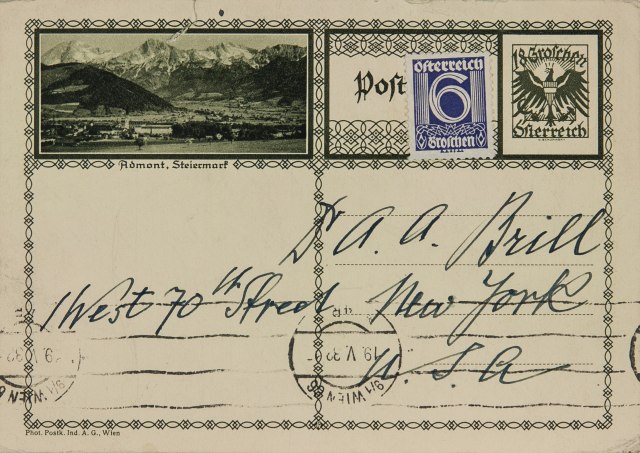 Post
Österreich
6
Groschen
18 Groschen
Österreich
Admont, Steiermark
Dr A. A. Brill
1 West 70th Street New York
U.S.A
19.V.32
WIEN
Phot. Postk. Ind. A. G., Wien